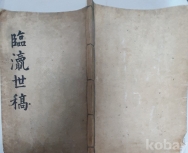 臨瀛世稿
kobay